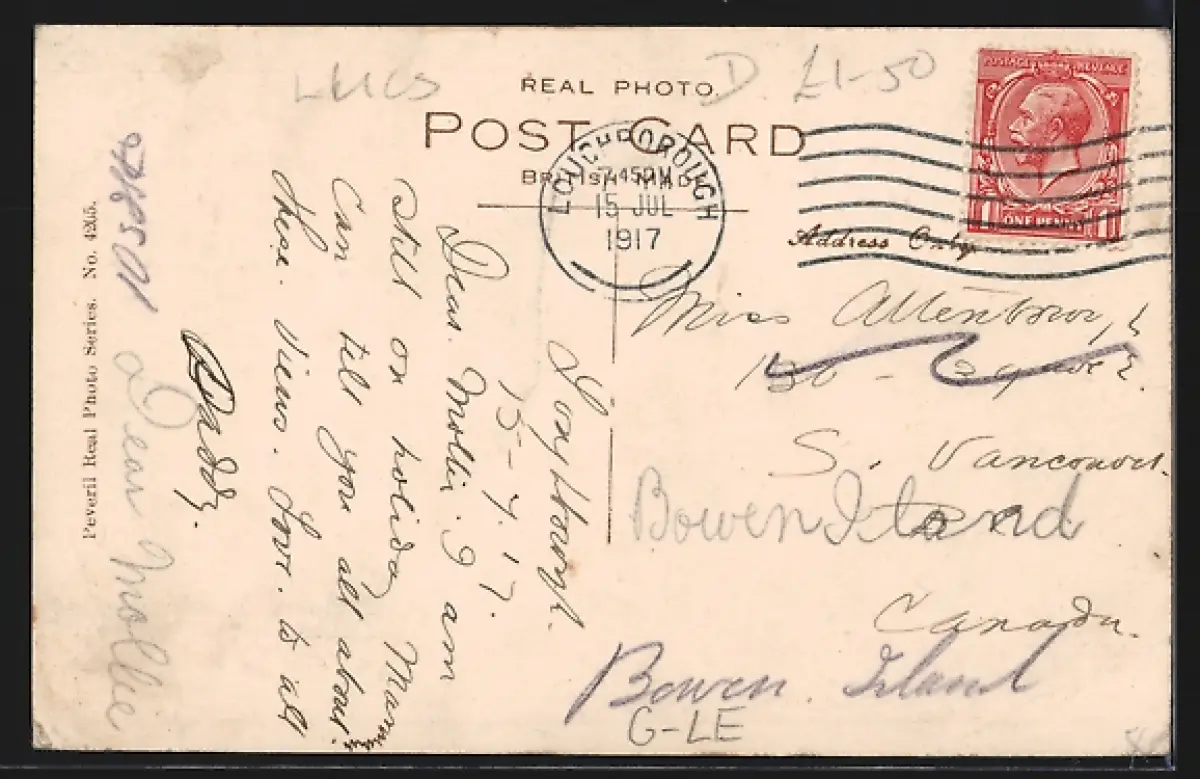 LEICS
D £1-50
REAL PHOTO
POST CARD
BRITISH MADE
LOUGHBOROUGH
7.45PM
15 JUL
1917
POSTAGE REVENUE
ONE PENNY
Address Only
Miss Attenboro'
S. Vancouver.
Bowen Island
Canada.
Bowen Island
G-LE
Loughborough.
15-7.17.
Dear Mollie I am
Still on holiday Mamy
Can tell you all about
these views. Love to all
Daddy.
Dear Mollie
Peveril Real Photo Series. No. 4205.